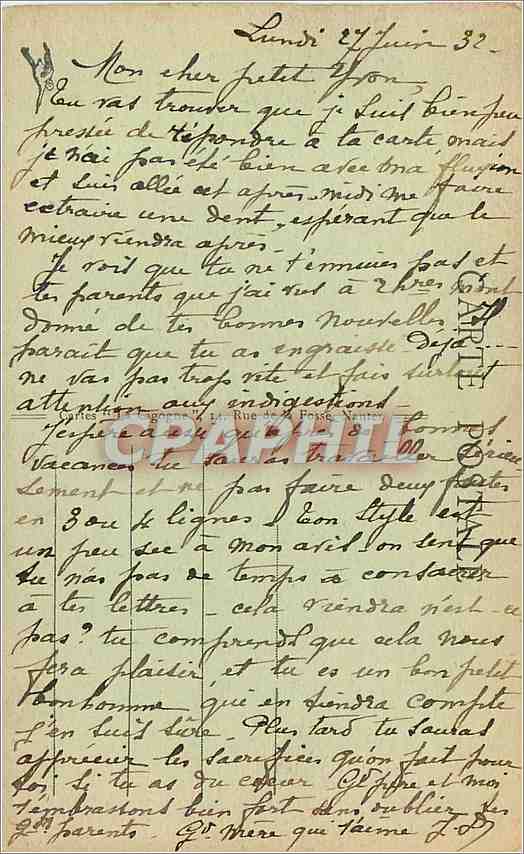 Lundi 27 Juin 32-
Mon cher petit Yvon,
Tu vas trouver que je suis bien peu
pressée de répondre à ta carte mais
je n'ai pas été bien avec ma fluxion
et suis allée cet après-midi me faire
extraire une dent, espérant que le
mieux viendra après.
Je vois que tu ne t'ennuies pas et
tes parents que j'ai vus à 2 hres m'ont
donné de tes bonnes nouvelles. Il
parait que tu as engraissé. Déjà....
ne vas pas trop vite et fais surtout
attention aux indigestions
Cartes "La Cigogne", 14, Rue de la Fosse, Nantes
J'espère aussi qu'après de bonnes
vacances tu sauras travailler sérieu
sement et ne pas faire deux fautes
en 3 ou 4 lignes. Ton style est
un peu sec à mon avis. on sent que
tu n'as pas de temps à consacrer
à tes lettres - cela viendra n'est-ce
pas? tu comprends que cela nous
fera plaisir et tu es un bon petit
bonhomme qui en tiendra compte
j'en suis sûre. Plus tard tu sauras
apprécier les sacrifices qu'on fait pour
toi si tu as du cœur. Gd père et moi
t'embrassons bien fort sans oublier tes
Gds parents. Gd mère qui t'aime
CARTE POSTALE
CPAPHIL